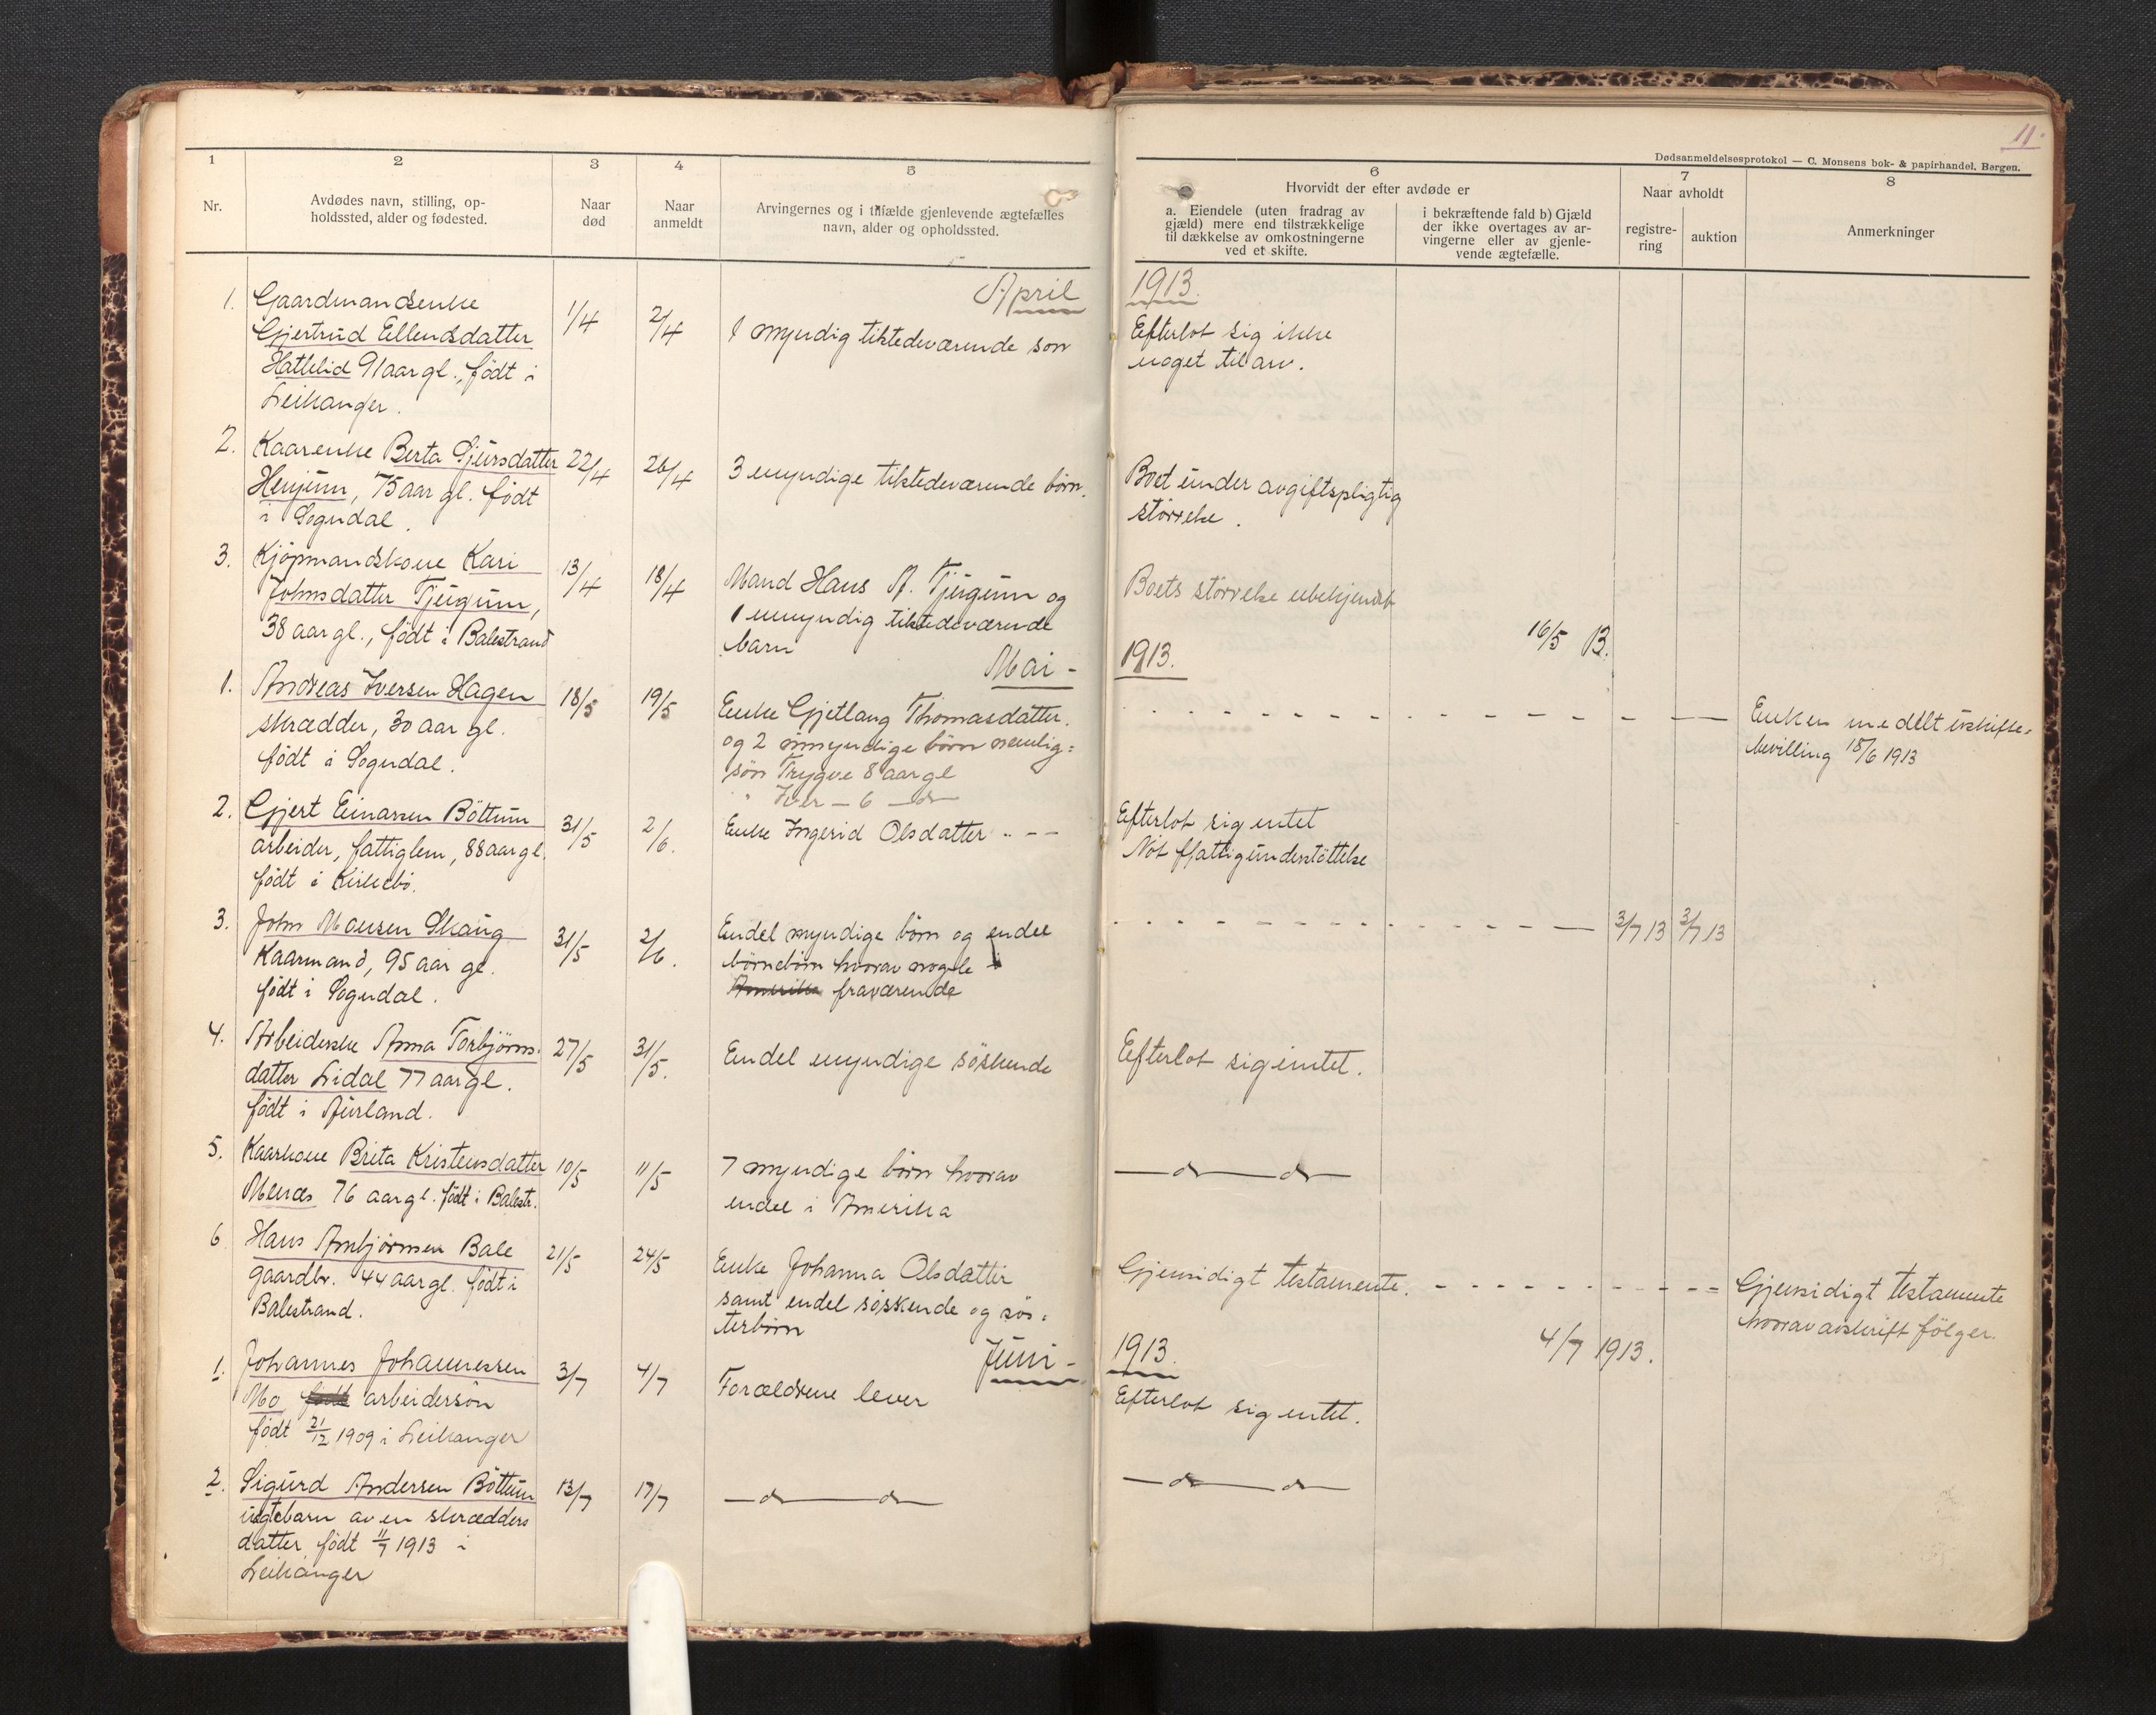 11.
Dødsanmeldelsesprotokol — C. Monsens bok- & papirhandel, Bergen.
1 2 3 4 5 6 7 8
Nr.
Avdødes navn, stilling, op-
holdssted, alder og fødested.
Naar
død
Naar
anmeldt
Arvingernes og i tilfælde gjenlevende ægtefælles
navn, alder og opholdssted.
Hvorvidt der efter avdøde er
a. Eiendele (uten fradrag av
gjæld) mere end tilstrækkelige
til dækkelse av omkostningerne
ved et skifte.
i bekræftende fald b) Gjæld
der ikke overtages av ar-
vingerne eller av gjenle-
vende ægtefælle.
Naar avholdt
registre-
ring
auktion
Anmerkninger
April 1913.
1. Gaardmandsenke
Gjertrud Ellendsdatter
Hatlelid 91 aar gl., født i
Leikanger.
1/4
2/4
1 myndig tilstedeværende søn
Efterlot sig ikke
noget til arv.
2. Kaarenke Berta Sjursdatter
Henjum, 75 aar gl. født
i Sogndal.
22/4
26/4
3 myndige tilstedeværende børn.
Boet under avgiftspligtig
størrelse.
3. Kjøpmandskone Kari
Johnsdatter Tjugum,
38 aar gl., født i Balestrand
13/4
18/4
Mand Hans A. Tjugum og
1 umyndig tilstedeværende
barn
Boets størrelse ubekjendt
16/5 13.
Mai - 1913.
1. Andreas Iversen Hagen
skrædder, 30 aar gl.
født i Sogndal.
18/5
19/5
Enke Gjetlaug Thomasdatter.
og 2 umyndige børn nemlig:
søn Trygve 8 aar gl
" Iver — 6 — do —
Enken meddelt uskifte-
bevilling 18/6 1913
2. Gjert Einarsen Bøttum
arbeider, fattiglem, 88 aar gl.
født i Kirkebø.
31/5
2/6.
Enke Ingerid Olsdatter
Efterlot sig intet
Nøt fattigunderstøttelse
3. John Monsen Skaug
Kaarmand, 95 aar gl.
født i Sogndal.
31/5
2/6.
Endel myndige børn og endel
børnebørn hvorav nogle i
Amerika fraværende
3/7 13
3/7 13
4. Arbeiderske Anna Torbjørns-
datter Lidal 77 aar gl.
født i Aurland.
27/5
31/5.
Endel myndige søskende
Efterlot sig intet.
5. Kaarkone Brita Kristensdatter
Menæs 76 aar gl. født i Balestr.
10/5
11/5
7 myndige børn hvorav
endel i Amerika
— do — do —
6 Hans Ambjørnsen Bale
gaardbr. 44 aar gl. født i
Balestrand.
21/5
24/5
Enke Johanna Olsdatter
samt endel søskende og søs-
terbørn
Gjensidigt testamente.
Gjensidigt testamente
hvorav avskrift følger.
4/7 1913.
Juni - 1913.
1. Johannes Johannessen
Mo født arbeidersøn
født 21/12 1909 i Leikanger
3/7
4/7
Forældrene lever
Efterlot sig intet.
2. Sigurd Andersen Bøttum
uegtebarn av en skrædders
datter født 11/7 1913 i
Leikanger
13/7
17/7
— do — do —
— do — do —